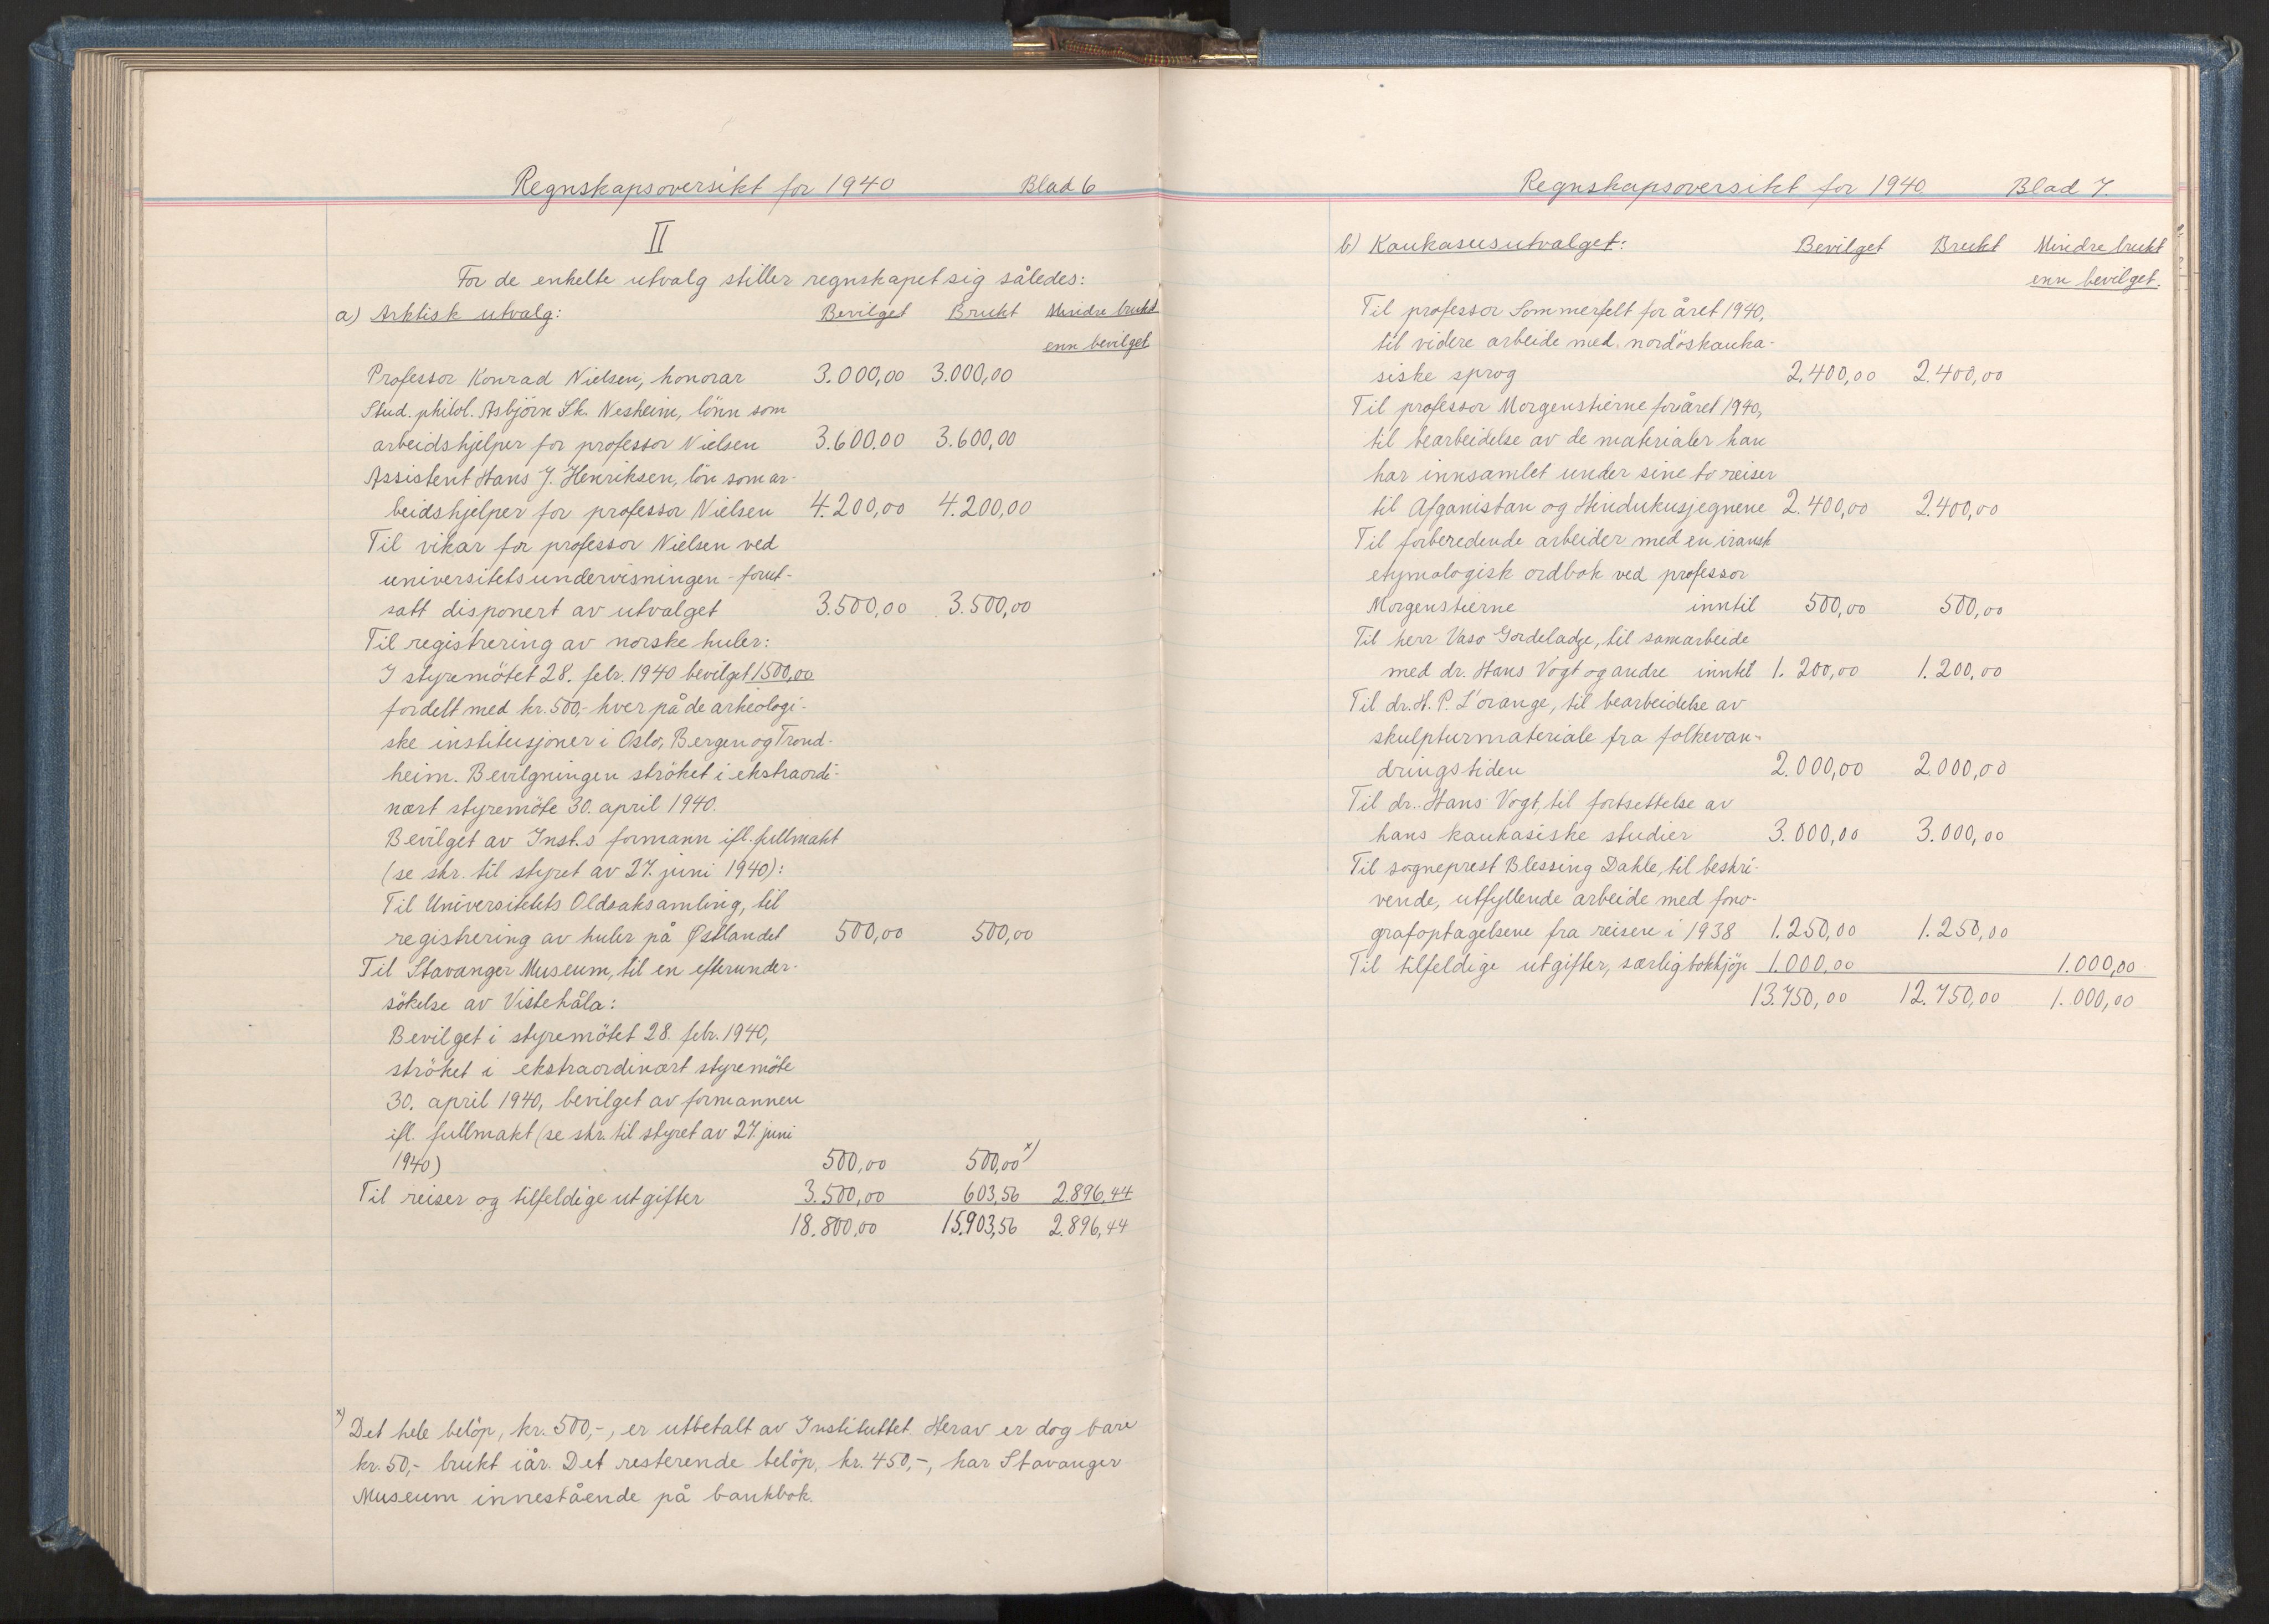 Regnskapsoversikt for 1940 Blad 6
II
For de enkelte utvalg stiller regnskapet sig således:
a) Arktisk utvalg: Bevilget Brukt Mindre brukt
enn bevilget
Professor Konrad Nielsen, honorar 3.000,00 3.000,00
Stud. philol. Asbjörn Sk. Nesheim, lönn som
arbeidshjelper for professor Nielsen 3.600.00 3.600,00
Assistent Hans J. Henriksen, lön som ar-
beidshjelper for professor Nielsen 4.200,00 4.200,00
Til vikar for professor Nielsen ved
universitetsundervisningen - forut-
satt disponert av utvalget 3.500,00 3.500,00
Til registrering av norske huler:
I styremötet 28. febr. 1940 bevilget 1500,00
fordelt med kr. 500,- hver på de arkeologi-
ske institusjoner i Oslo, Bergen og Trond-
heim. Bevilgningen ströket i ekstraordi-
nært styremöte 30. april 1940.
Bevilget av Inst.s formann ifl. fullmakt
(se skr. til styret av 27. juni 1940):
Til Universitetets Oldsaksamling, til
registrering av huler på Østlandet 500,00 500,00
Til Stavanger Museum, til en efterunder-
sökelse av Vistehåla:
Bevilget i styremötet 28. febr. 1940,
ströket i ekstraordinært styremöte
30. april 1940, bevilget av formannen
ifl. fullmakt (se skr. til styret av 27. juni
1940) 500,00 500,00 x)
Til reiser og tilfeldige utgifter 3.500,00 603,56 2.896,44
18.800,00 15.903,56 2.896,44
x) Det hele belöp, kr. 500,-, er utbetalt av Instituttet. Herav er dog bare
kr. 50,- brukt iår. Det resterende belöp, kr. 450,-, har Stavanger
Museum innestående på bankbok.
Regnskapsoversikt for 1940 Blad 7.
b) Kaukasusutvalget: Bevilget Brukt Mindre brukt
enn bevilget.
Til professor Sommerfelt for året 1940,
til videre arbeide med nordöskauka-
siske sprog 2.400,00 2.400,00
Til professor Morgenstierne for året 1940,
til bearbeidelse av de materialer han
har innsamlet under sine to reiser
til Afganistan og Hindukusjegnene 2.400,00 2.400,00
Til forberedende arbeider med en iransk
etymologisk ordbok ved professor
Morgenstierne inntil 500,00 500,00
Til herr Vaso Gordeladze, til samarbeide
med dr. Hans Vogt og andre inntil 1.200,00 1.200,00
Til dr. H. P. L'orange, til bearbeidelse av
skulpturmateriale fra folkevan-
dringstiden 2.000,00 2.000,00
Til dr. Hans Vogt, til fortsettelse av
hans kaukasiske studier 3.000,00 3.000,00
Til sogneprest Blessing Dahle, til beskri-
vende, utfyllende arbeide med fono-
grafoptagelsene fra reisene i 1938 1.250,00 1.250,00
Til tilfeldige utgifter, særlig bokkjöp 1.000,00 1.000,00
13.750,00 12.750,00 1.000,00